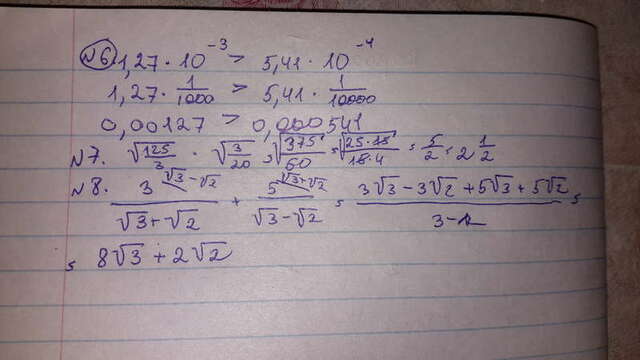 №6. 1,27 · 10⁻³ > 5,41 · 10⁻⁴
1,27 · 1/1000 > 5,41 · 1/10000
0,00127 > 0,000541
№7. √(125/3) · √(3/20) = √(375/60) = √(25·15/(15·4)) = 5/2 = 2 1/2
№8. 3^(√3-√2)/(√3+√2) + 5^(√3+√2)/(√3-√2) = (3√3 - 3√2 + 5√3 + 5√2)/(3-2) =
= 8√3 + 2√2